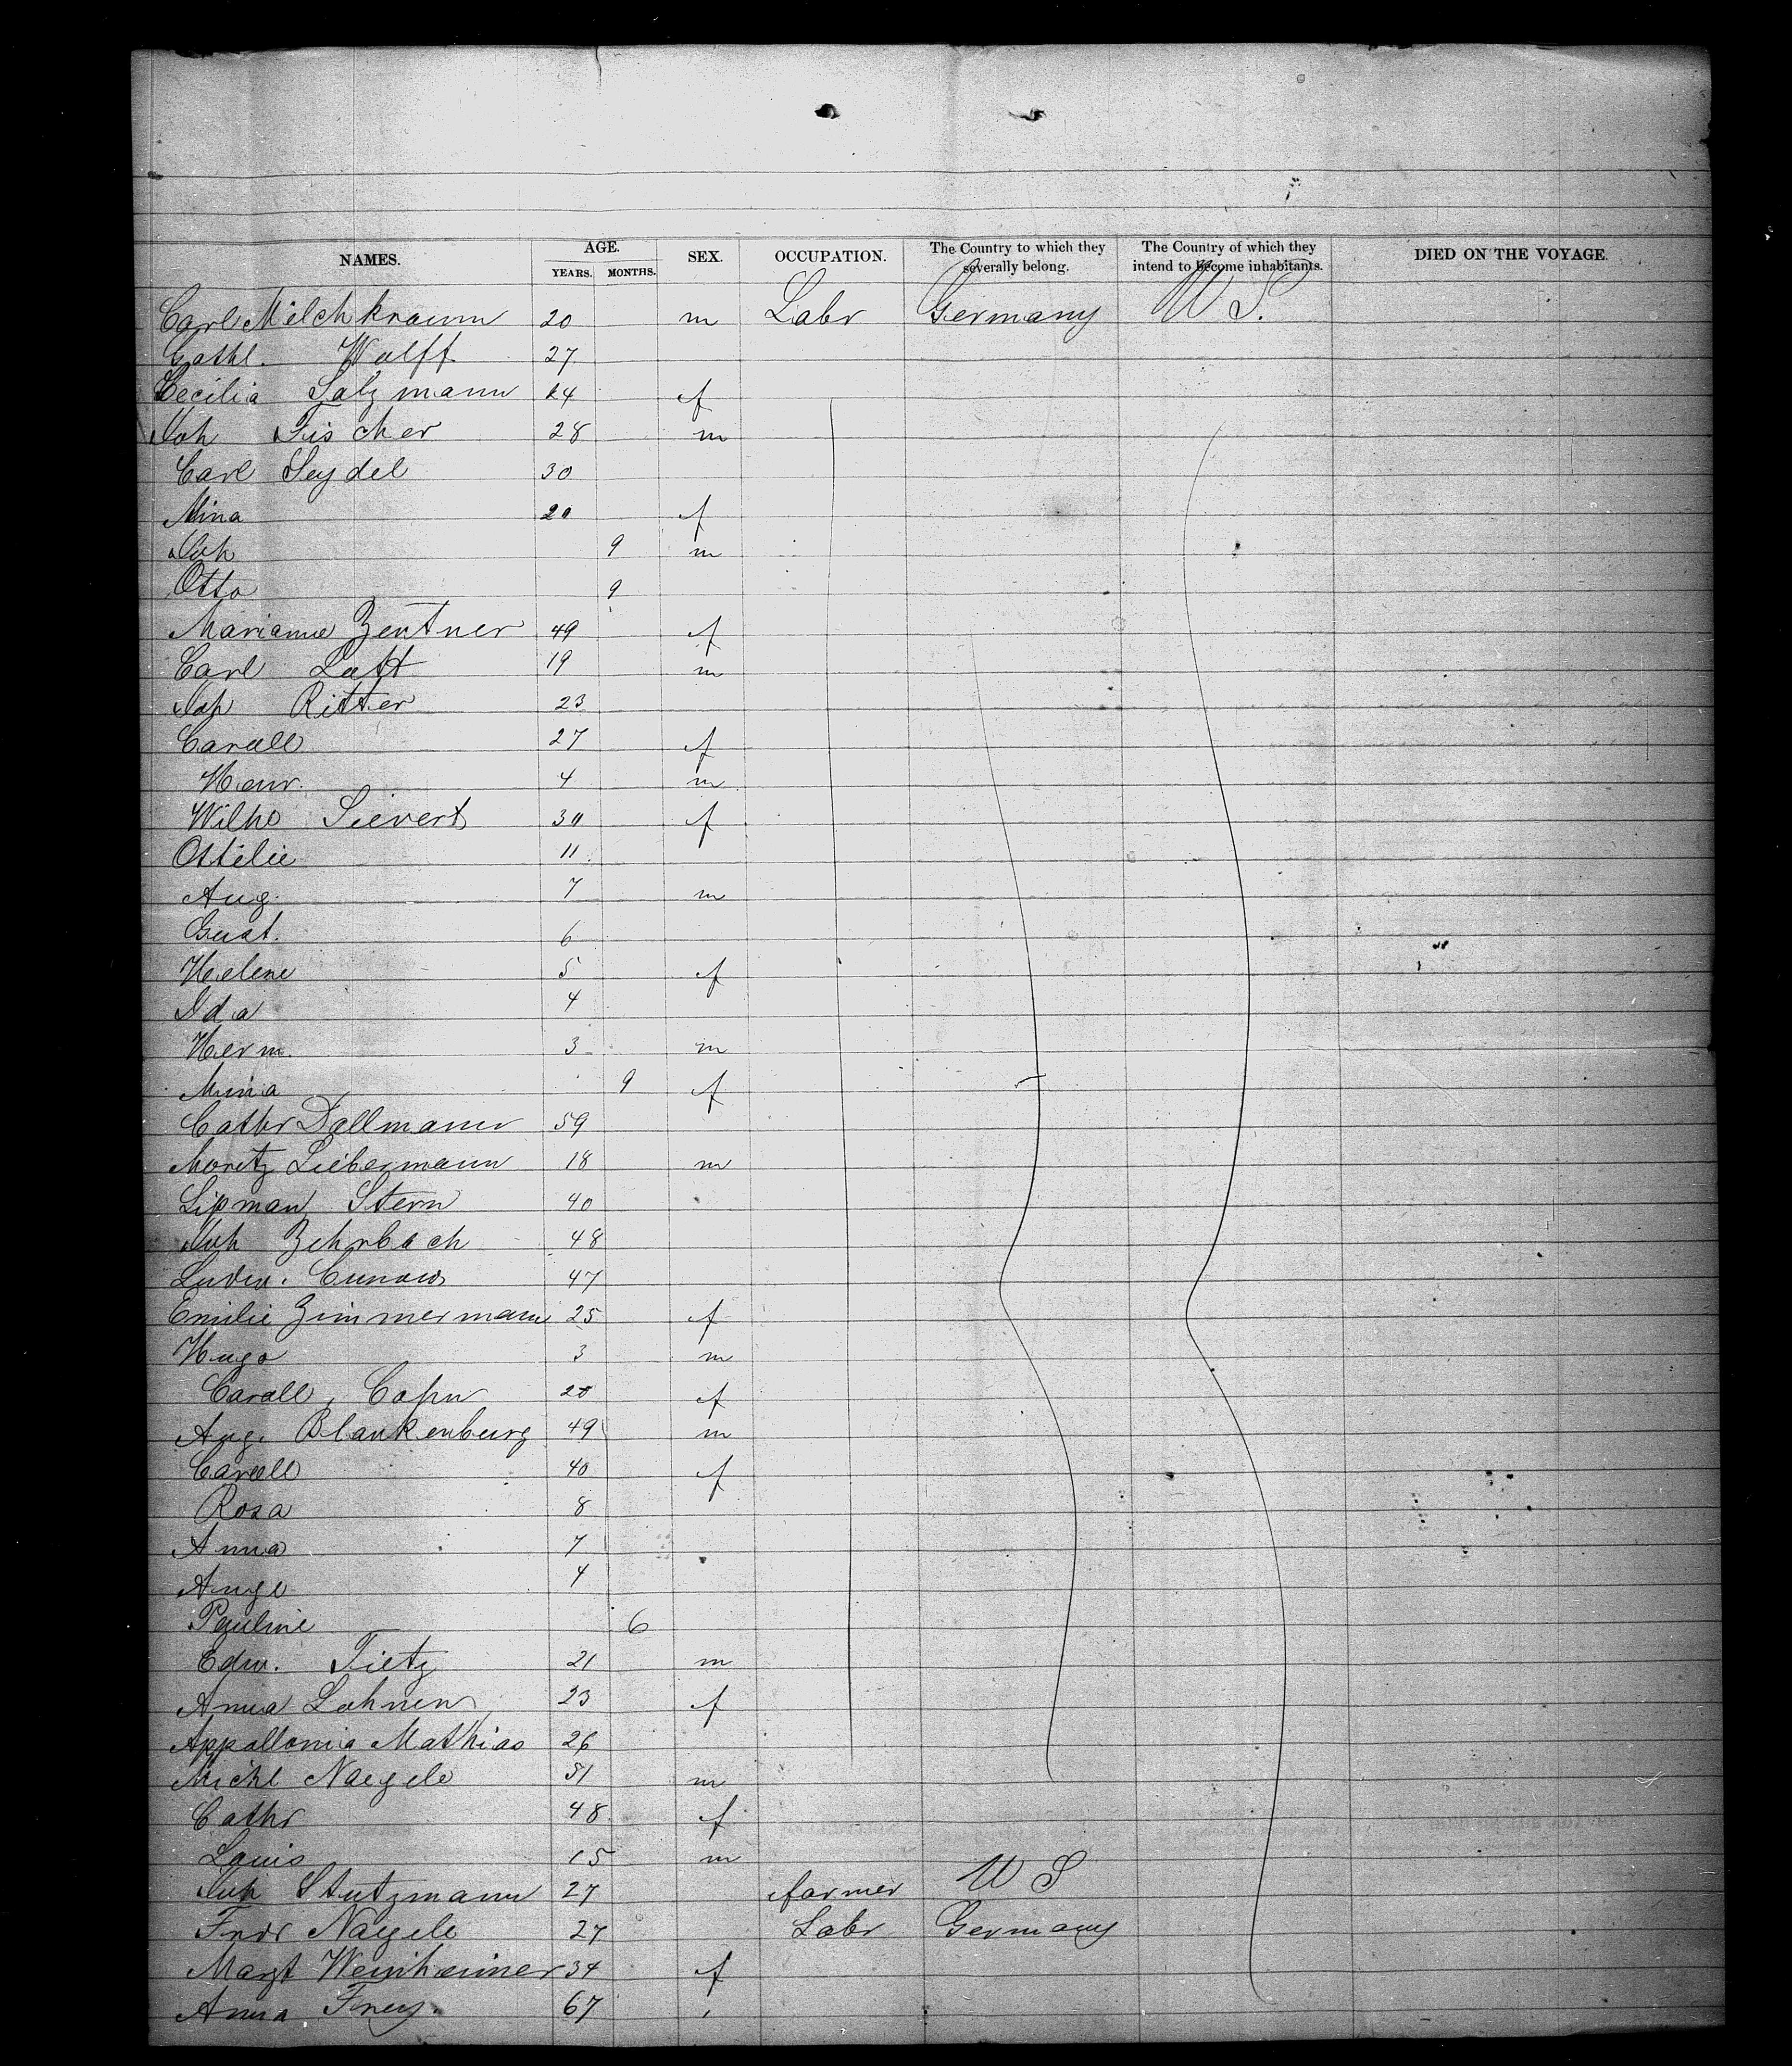 NAMES. AGE. YEARS. MONTHS. SEX. OCCUPATION. The Country to which they severally belong. The Country of which they intend to become inhabitants. DIED ON THE VOYAGE.
Carl Milchkraum 20 m Labr Germany U S.
Gathl. Wolff 27
Cecilia Salzmann 64 f
Joh Fischer 28 m
Carl Seydel 30
Mina 20 f
Joh 9 m
Otto 9
Marianne Zentner 49 f
Carl Latt 19 m
Joh Ritter 23
Caroll 27 f
Henr. 4 m
Wilhe Sievert 30 f
Ottilie 11
Aug. 7 m
Gust. 6
Helene 5 f
Ida 4
Herm. 3 m
Mina 9 f
Cathr Dallmann 59
Moretz Liebermann 18 m
Lipman Stern 40
Joh Zehrbach 48
Ludw. Cunow 47
Emilie Zimmermann 25 f
Hugo 3 m
Caroll, 20 f
Aug. Blankenburg 49 m
Caroll 40 f
Rosa 8
Anna 7
Auge 4
Pauline 6
Edw. Tietz 21 m
Anna Lohnen 23 f
Appollonia Mathias 26
Michl Naegele 51 m
Cathr 48 f
Louis 15 m
Joh Stutzmann 27 farmer U S
Fridr Naegele 27 Labr Germany
Margt Weinheimer 34 f
Anna Frey. 67 "